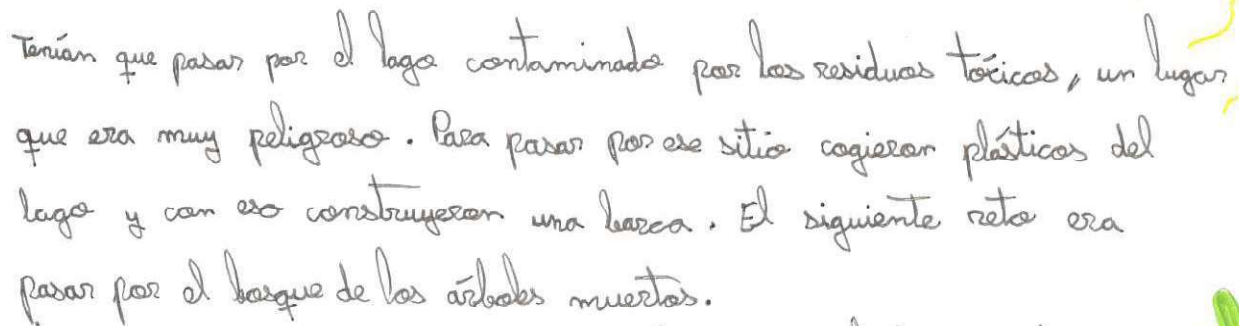 Tenían que pasar por el lago contaminado por los residuos tóxicos, un lugar
que era muy peligroso. Para pasar por ese sitio cogieron plásticos del
lago y con eso construyeron una barca. El siguiente reto era
pasar por el bosque de los árboles muertos.